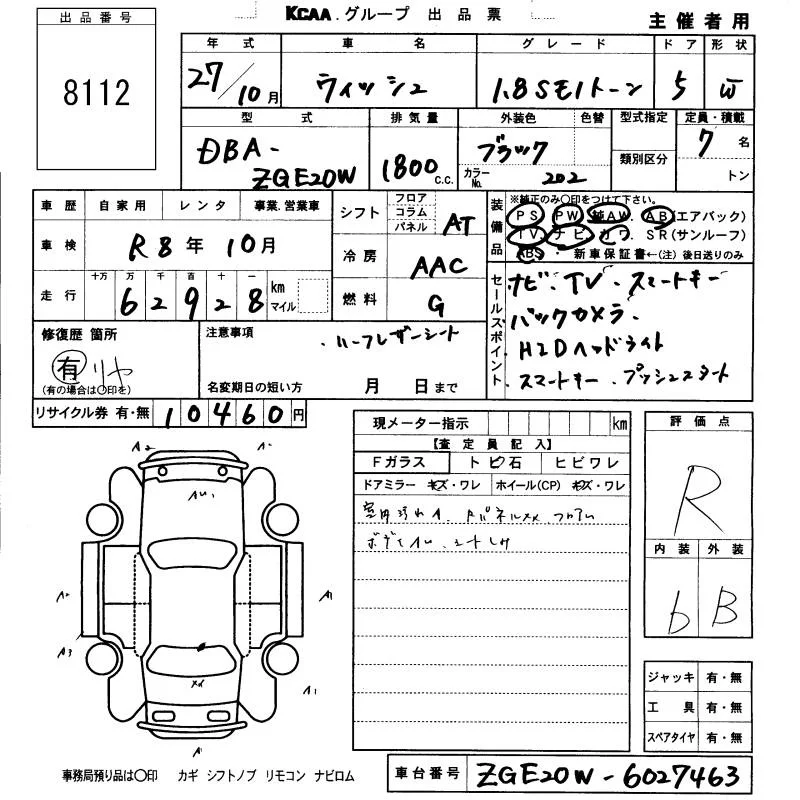 出品番号
8112
KCAA グループ 出品票
主催者用
年式 車名 グレード ドア 形状
27/10月 ウィッシュ 1.8SモノトーンN 5 W
型式 排気量 外装色 色替 型式指定 定員・積載
DBA-ZGE20W 1800c.c. ブラック カラーNo. 202 類別区分 7名 トン
車歴 自家用 レンタ 事業.営業車
車検 R8年10月
走行 十万 万 千 百 十 一 km マイル
62928
シフト フロア コラム パネル AT
冷房 AAC
燃料 G
装備品 ※純正のみ〇印をつけて下さい。
PS PW 純AW AB(エアバック)
TV ナビ カワ SR(サンルーフ)
ABS ・新車保証書←(注)後日送りのみ
セールスポイント
ナビ、TV、スマートキー
バックカメラ、
HIDヘッドライト
スマートキー、プッシュスタート
修復歴 箇所
有 リヤ
(有の場合は〇印を)
注意事項
ハーフレザーシート
名変期日の短い方 月 日まで
リサイクル券 有・無 10460円
現メーター指示 km
【査定員記入】
Fガラス トビ石 ヒビワレ
ドアミラー キズ・ワレ ホイール(CP) キズ・ワレ
評価点
R
内装 外装
b B
A2
AU1
A2
A1
A3
A1
XX
A
ジャッキ 有・無
工具 有・無
スペアタイヤ 有・無
事務局預り品は〇印 カギ シフトノブ リモコン ナビロム
車台番号 ZGE20W-6027463